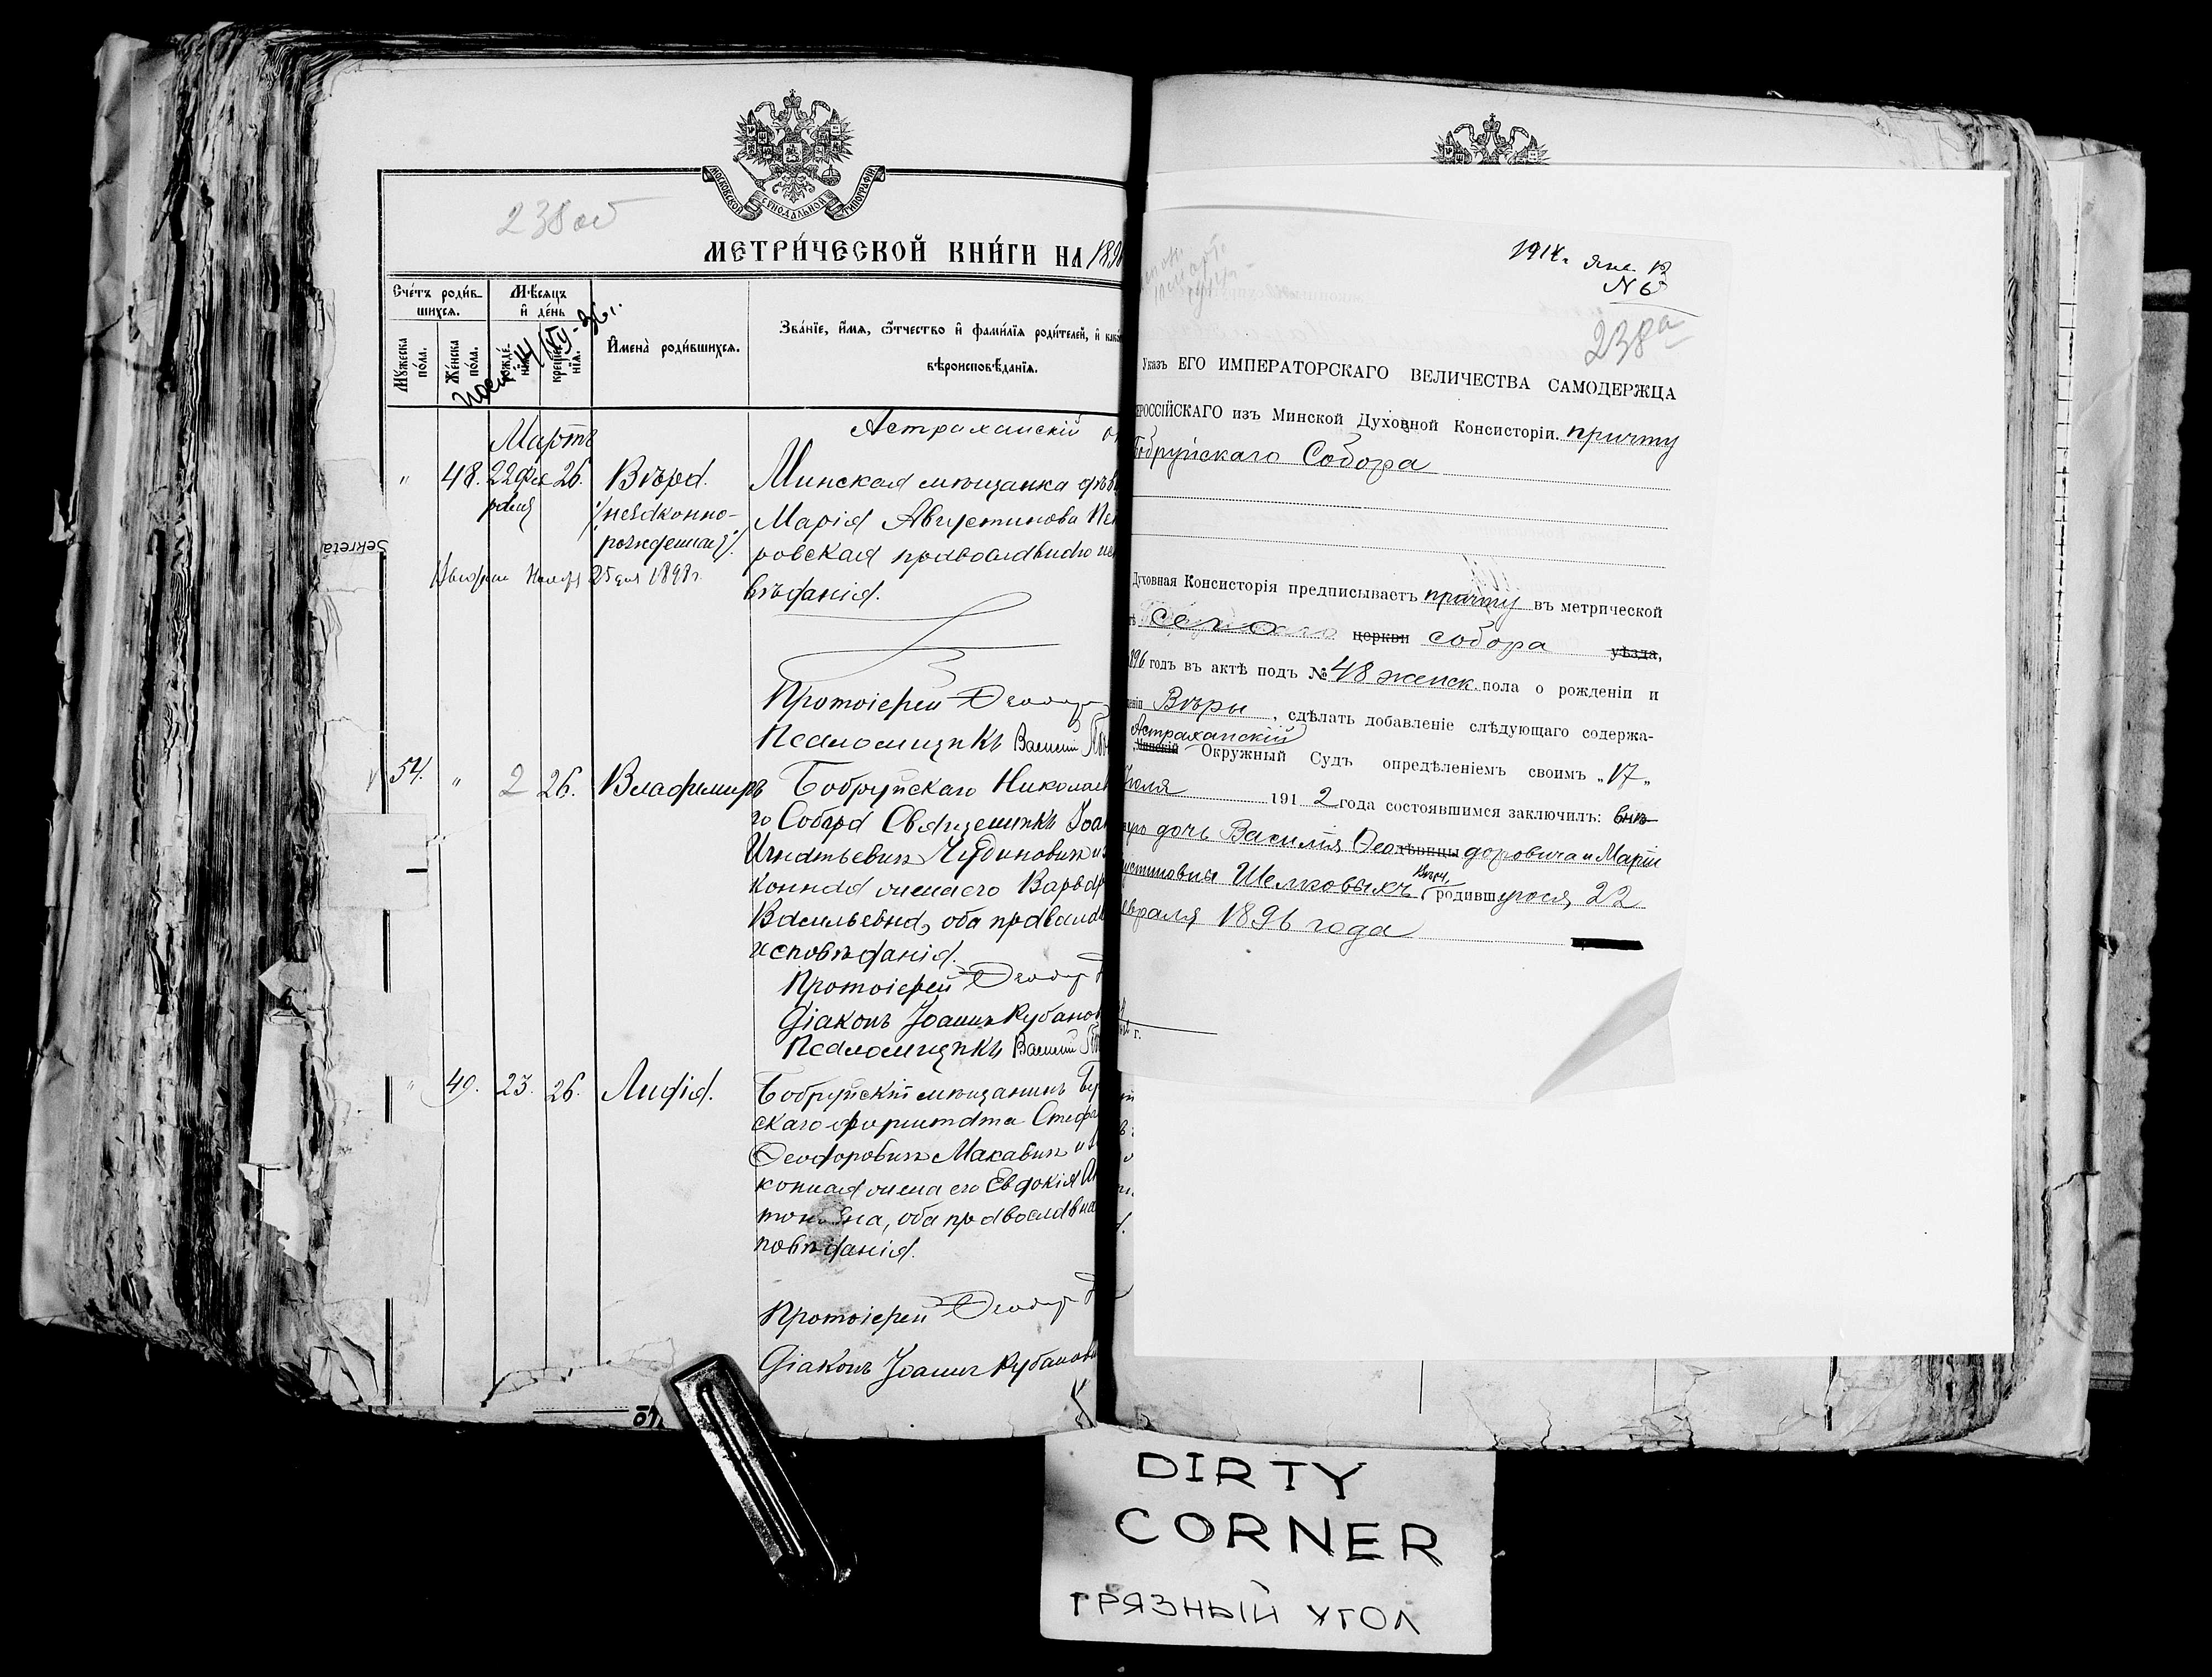 МОСКОВСКОЙ СѴНОДАЛЬНОЙ ТИПОГРАФІИ
238 об
МЕТРИ́ЧЕСКОЙ КНИ́ГИ НА 189
Сче́тъ роди́вшихся.
Мꙋ́жеска по́ла.
Же́нска по́ла.
Мѣ́сяцъ и҆ де́нь
рожде́нїѧ.
креще́нїѧ.
И҆мена̀ роди́вшихсѧ.
Зва́нїе, и҆́мѧ, ѻ҆́тчество и҆ фами́лїѧ роди́телей, и҆ како
вѣроисповѣ́данїѧ.
Астраханскій
Мартъ
" 48. 22 фев 26. Вѣра.
раля
/незаконно-
рожденная/.
25 дня 1898 г.
Минская мѣщанка дѣв
Марія Августинова Пе
ровская православнаго
вѣданія.
Протоіерей Ѳеодор
Псаломщикъ Василій
54. " 2 26. Владимиръ
Бобруйскаго Николаев
го Собора Священникъ Іоа
Игнатьевичъ Чудиновичъ и з
конная жена его Варвар
Васильевна, оба правосла
исповѣданія.
Протоіерей Ѳеодор
Діаконъ Іоаннъ Кубанов
Псаломщикъ Василій
" 49. 23. 26. Лидія.
Бобруйскій мѣщанинъ
Стефа
Ѳеодоровичъ Макавичъ и з
конная жена его Евдокія Ан
тоновна, оба православна
повѣданія.
Протоіерей Ѳеодор
Діаконъ Іоаннъ Кубанов
Sekreta
1914 г. Янв. 13
№ 63
238а
Указъ ЕГО ИМПЕРАТОРСКАГО ВЕЛИЧЕСТВА САМОДЕРЖЦА
РОССІЙСКАГО изъ Минской Духовной Консисторіи. причту
Бобруйскаго Собора
Духовная Консисторія предписываетъ причту въ метрической
сего церкви собора уѣзда,
1896 годъ въ актѣ подъ № 48 женск. пола о рожденіи и
еніи Вѣры, сдѣлать добавленіе слѣдующаго содержа-
Астраханскій
Минскій Окружный Судъ опредѣленіемъ своимъ „17„
Іюля 1912 года состоявшимся заключилъ: внѣ
дочь Василія Ѳеодѣвицы доровича и Маріи
густиновны Шелковыхъ Вѣру, родившуюся 22
евраля 1896 года
г.
DIRTY
CORNER
ГРЯЗНЫЙ УГОЛ